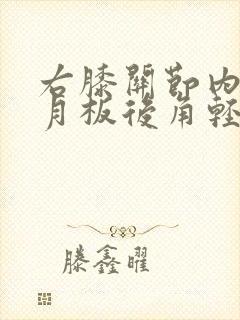 右膝關節內
月板後角輕
滕鑫曜